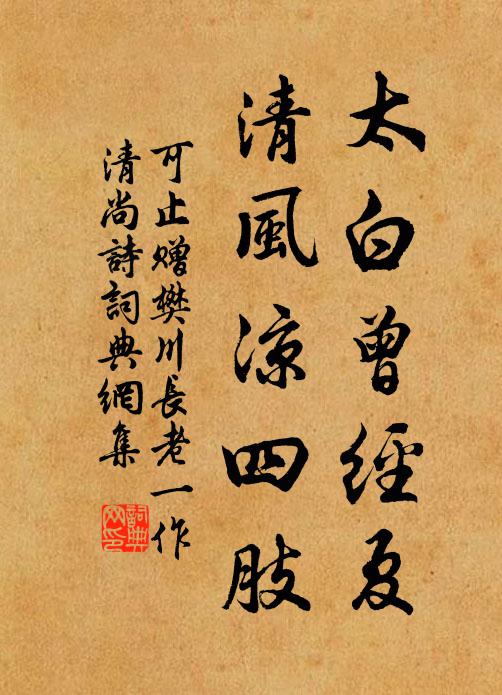 太白曾經夏
清風涼四肢
可止贈樊川長老一作
清尚詩詞典網集
詞典網印